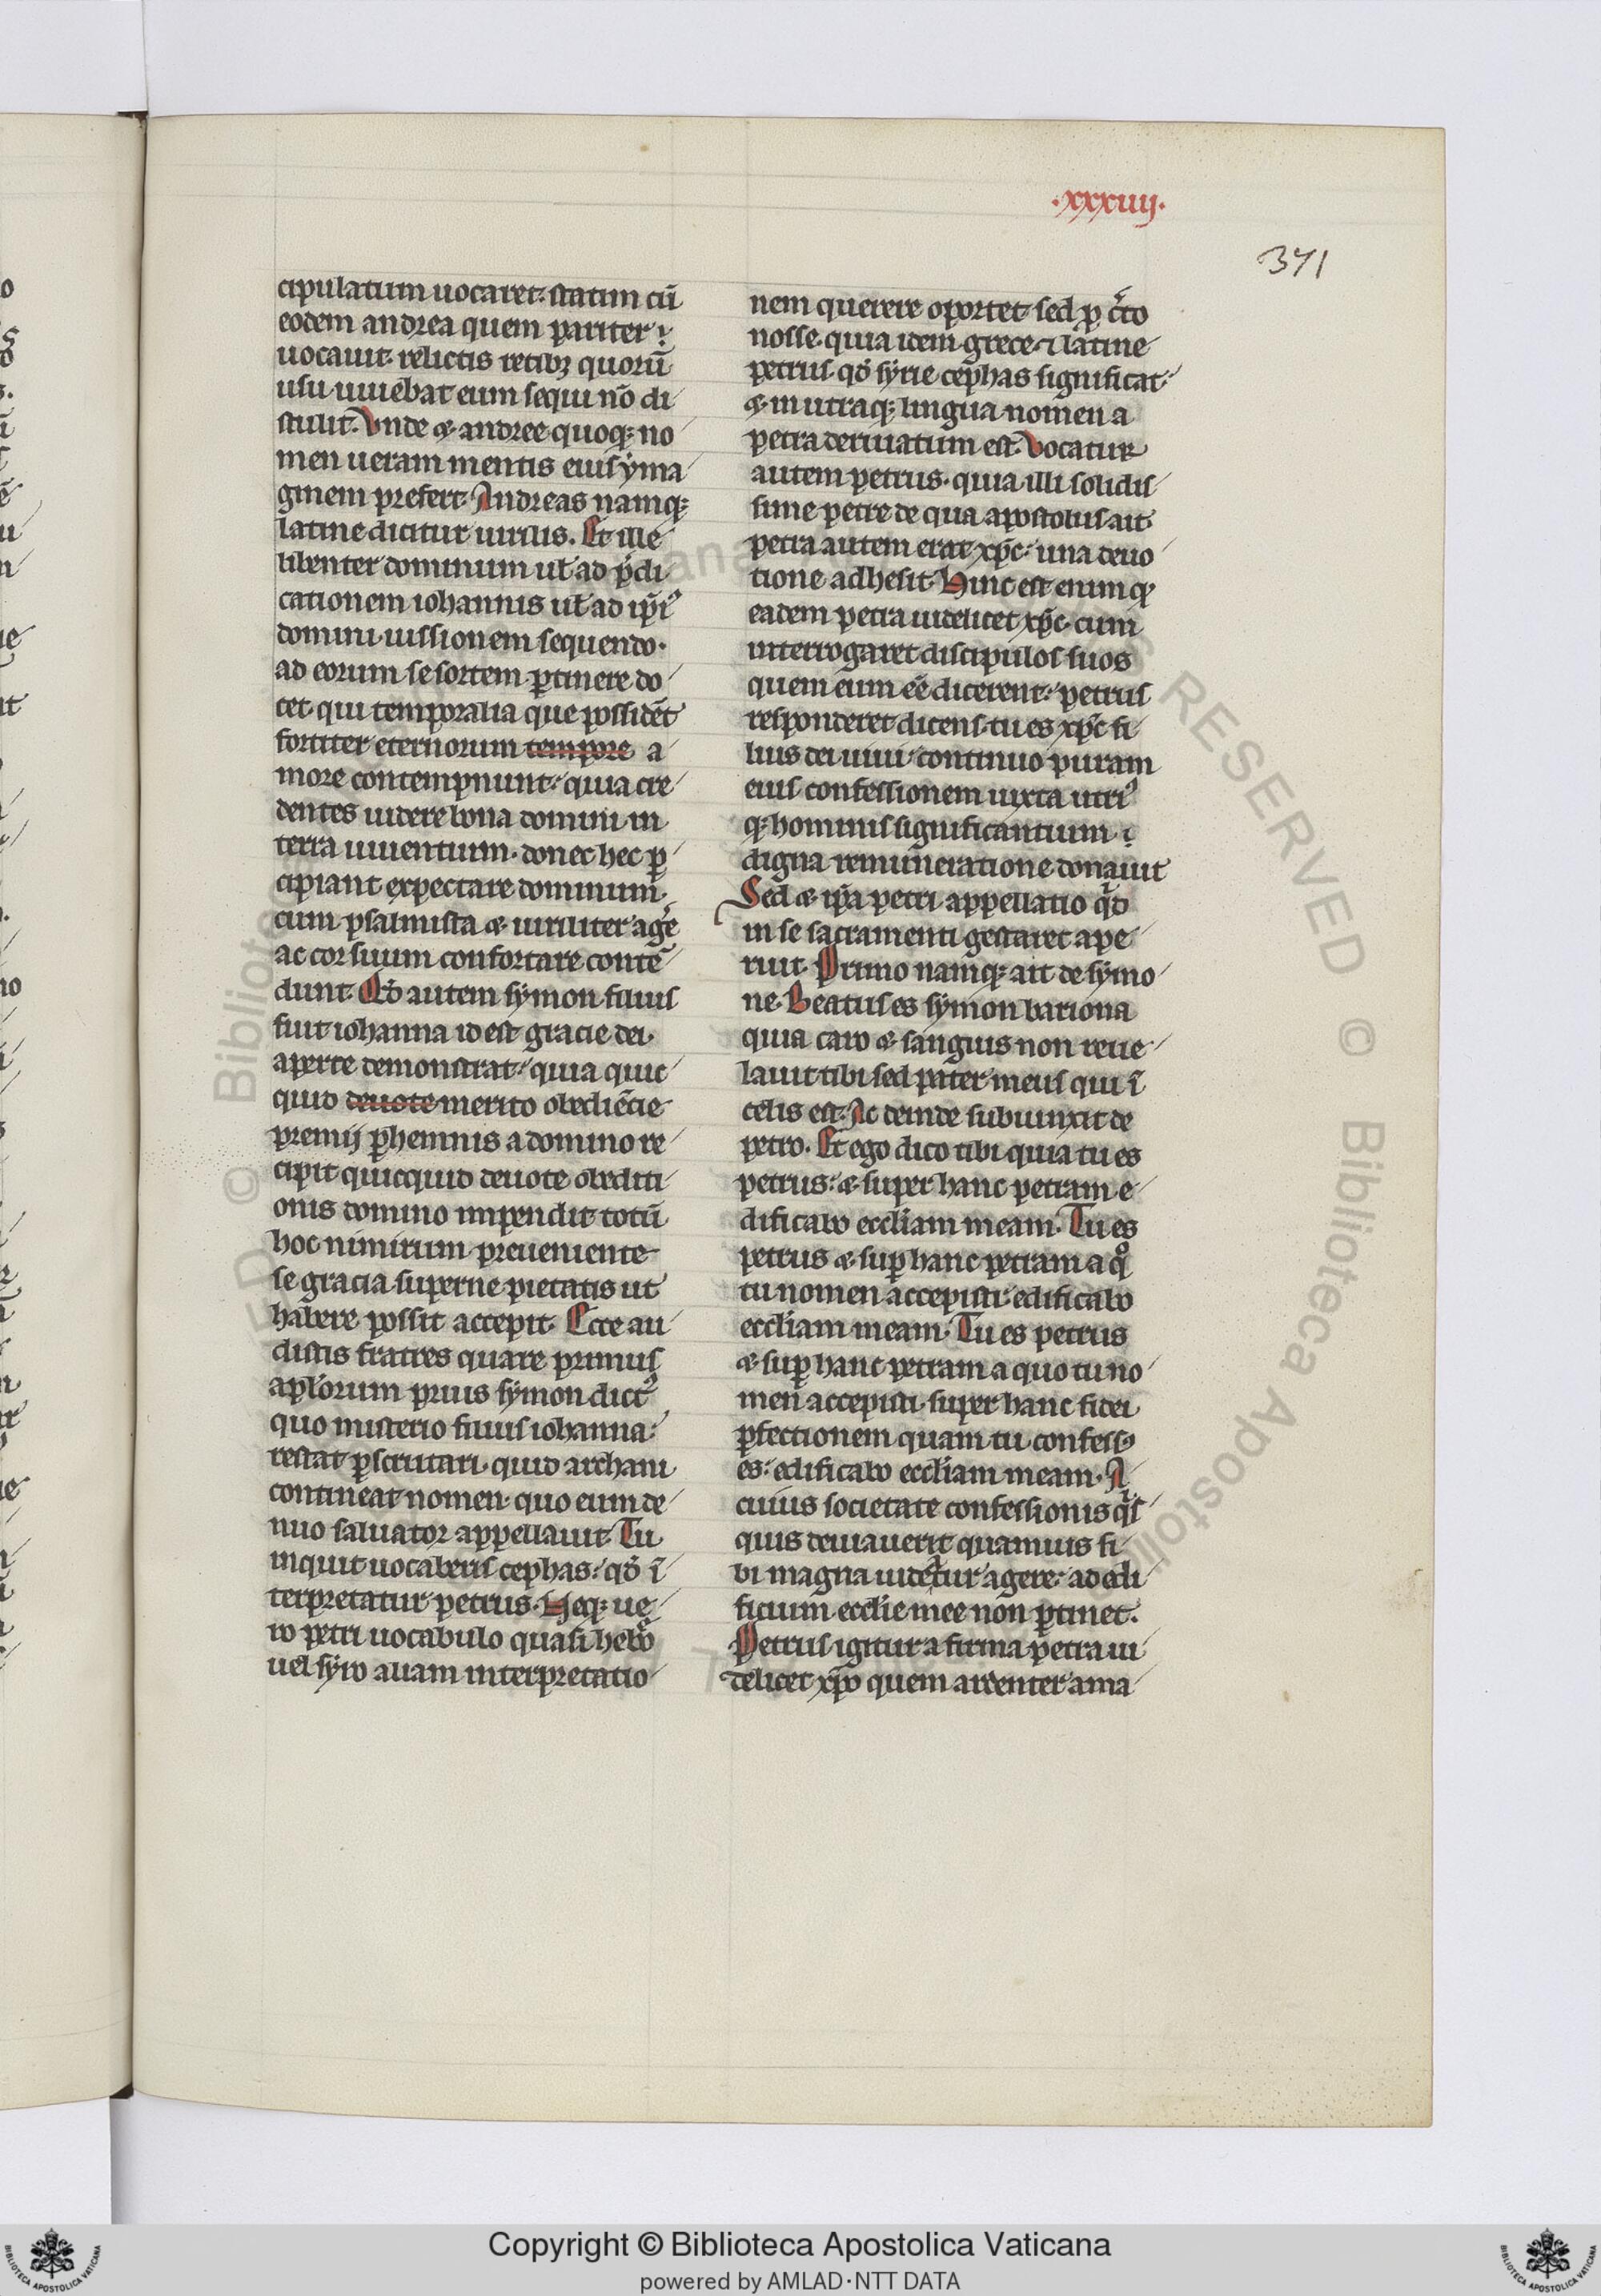 ·xxxiiij·
371
cipulatum uocaret. statim cū
eodem andrea quem pariter
uocauit relictis retibꝫ quorū
usu uiuebat eum sequi nō di
stulit. Vnde ⁊ andree quoqꝫ no
men ueram mentis eius yma
ginem prefert. Andreas namqꝫ
latine dicitur uirilis. Et ille
libenter dominum ul̄ ad p̄di
cationem iohannis ul̄ ad ip̄iꝰ
domini iussionem sequendo.
ad eorum se sortem ꝑtinere do
cet qui temporalia que possidēt
fortiter eternorum tempore a
more contempnunt. quia cre
dentes uidere bona domini in
terra uiuentium. donec hec ꝑ
cipiant expectare dominum.
cum psalmista ⁊ uiriliter agēˀ
ac cor suum confortare contē
dunt. Qđ autem symon filius
fuit iohanna id est gracie dei.
aperte demonstrat. quia quic
quid deuote merito obediēcie
premij ꝑhennis a domino re
cipit quicquid deuote obediti
onis domino impendit totū
hoc nimirum preueniente
se gracia superne pietatis ut
habere possit accepit. Ecce au
distis fratres quare primus
apl̓orum prius symon dictꝰ
quo misterio filius iohanna.
restat ꝑscrutari. quid archani
contineat nomen quo eum de
nuo saluator appellauit. Tu
inquit uocaberis cephas. qđ ī
terpretatur petrus. Neqꝫ ue
ro petri uocabulo quasi hebͦo
uel syro aliam interpretatio
nem querere oportet sed ꝓ c̓to
nosse. quia idem grece ⁊ latine
petrus qđ syrie cephas significat.
⁊ in utraqꝫ lingua nomen a
petra deriuatum est. Vocatur
autem petrus. quia illi solidis
sime petre de qua apostolus ait
petra autem erat xp̄c. una deuo
tione adhesit. Hinc est enim qꝫ
eadem petra uidelicet xp̄c. cum
interrogaret discipulos suos
quem eum eē dicerent. petrus
responderet dicens. tu es xp̄c fi
lius dei uiui. continuo puram
eius confessionem iuxta utriꝰ
qꝫ hominis significantium
digna remuneratione donauit
Sed ⁊ ip̄a petri appellatio qͥd
in se sacramenti gestaret ape
ruit. Primo namqꝫ ait de symo
ne. Beatus es symon bariona
quia caro ⁊ sanguis non reue
lauit tibi sed pater meus qui ī
celis est. Ac deinde subiunxit de
petro. Et ego dico tibi quia tu es
petrus. ⁊ super hanc petram e
dificabo eccl̓iam meam. Tu es
petrus ⁊ suꝑ hanc petram a qͦ
tu nomen accepisti edificabo
eccl̓iam meam. Tu es petrus
⁊ suꝑ hanc petram a quo tu no
men accepisti. super hanc fidei
ꝑfectionem quam tu confessꝰ
es. edificabo eccl̓iam meam. A
cuius societate confessionis qͥs
quis deuiauerit quamuis si
bi magna uideatur agere. ad edi
ficium eccl̓ie mee non ꝑtinet.
Petrus igitur a firma petra ui
delicet xp̄o quem ardenter ama